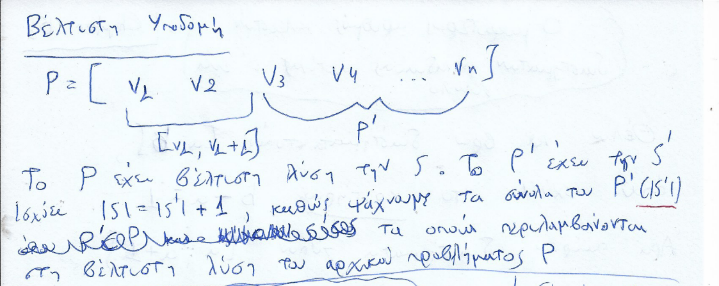 Βέλτιστη Υποδομή
P = [ v1 v2 v3 v4 ... vn ]
[v1, v1+1] P'
Το P έχει βέλτιστη λύση την S. Το P' έχει την S'
Ισχύει |S| = |S'| + 1, καθώς ψάχνουμε τα σύνολα του P' (|S'|)
τα οποία περιλαμβάνονται
στη βέλτιστη λύση του αρχικού προβλήματος P